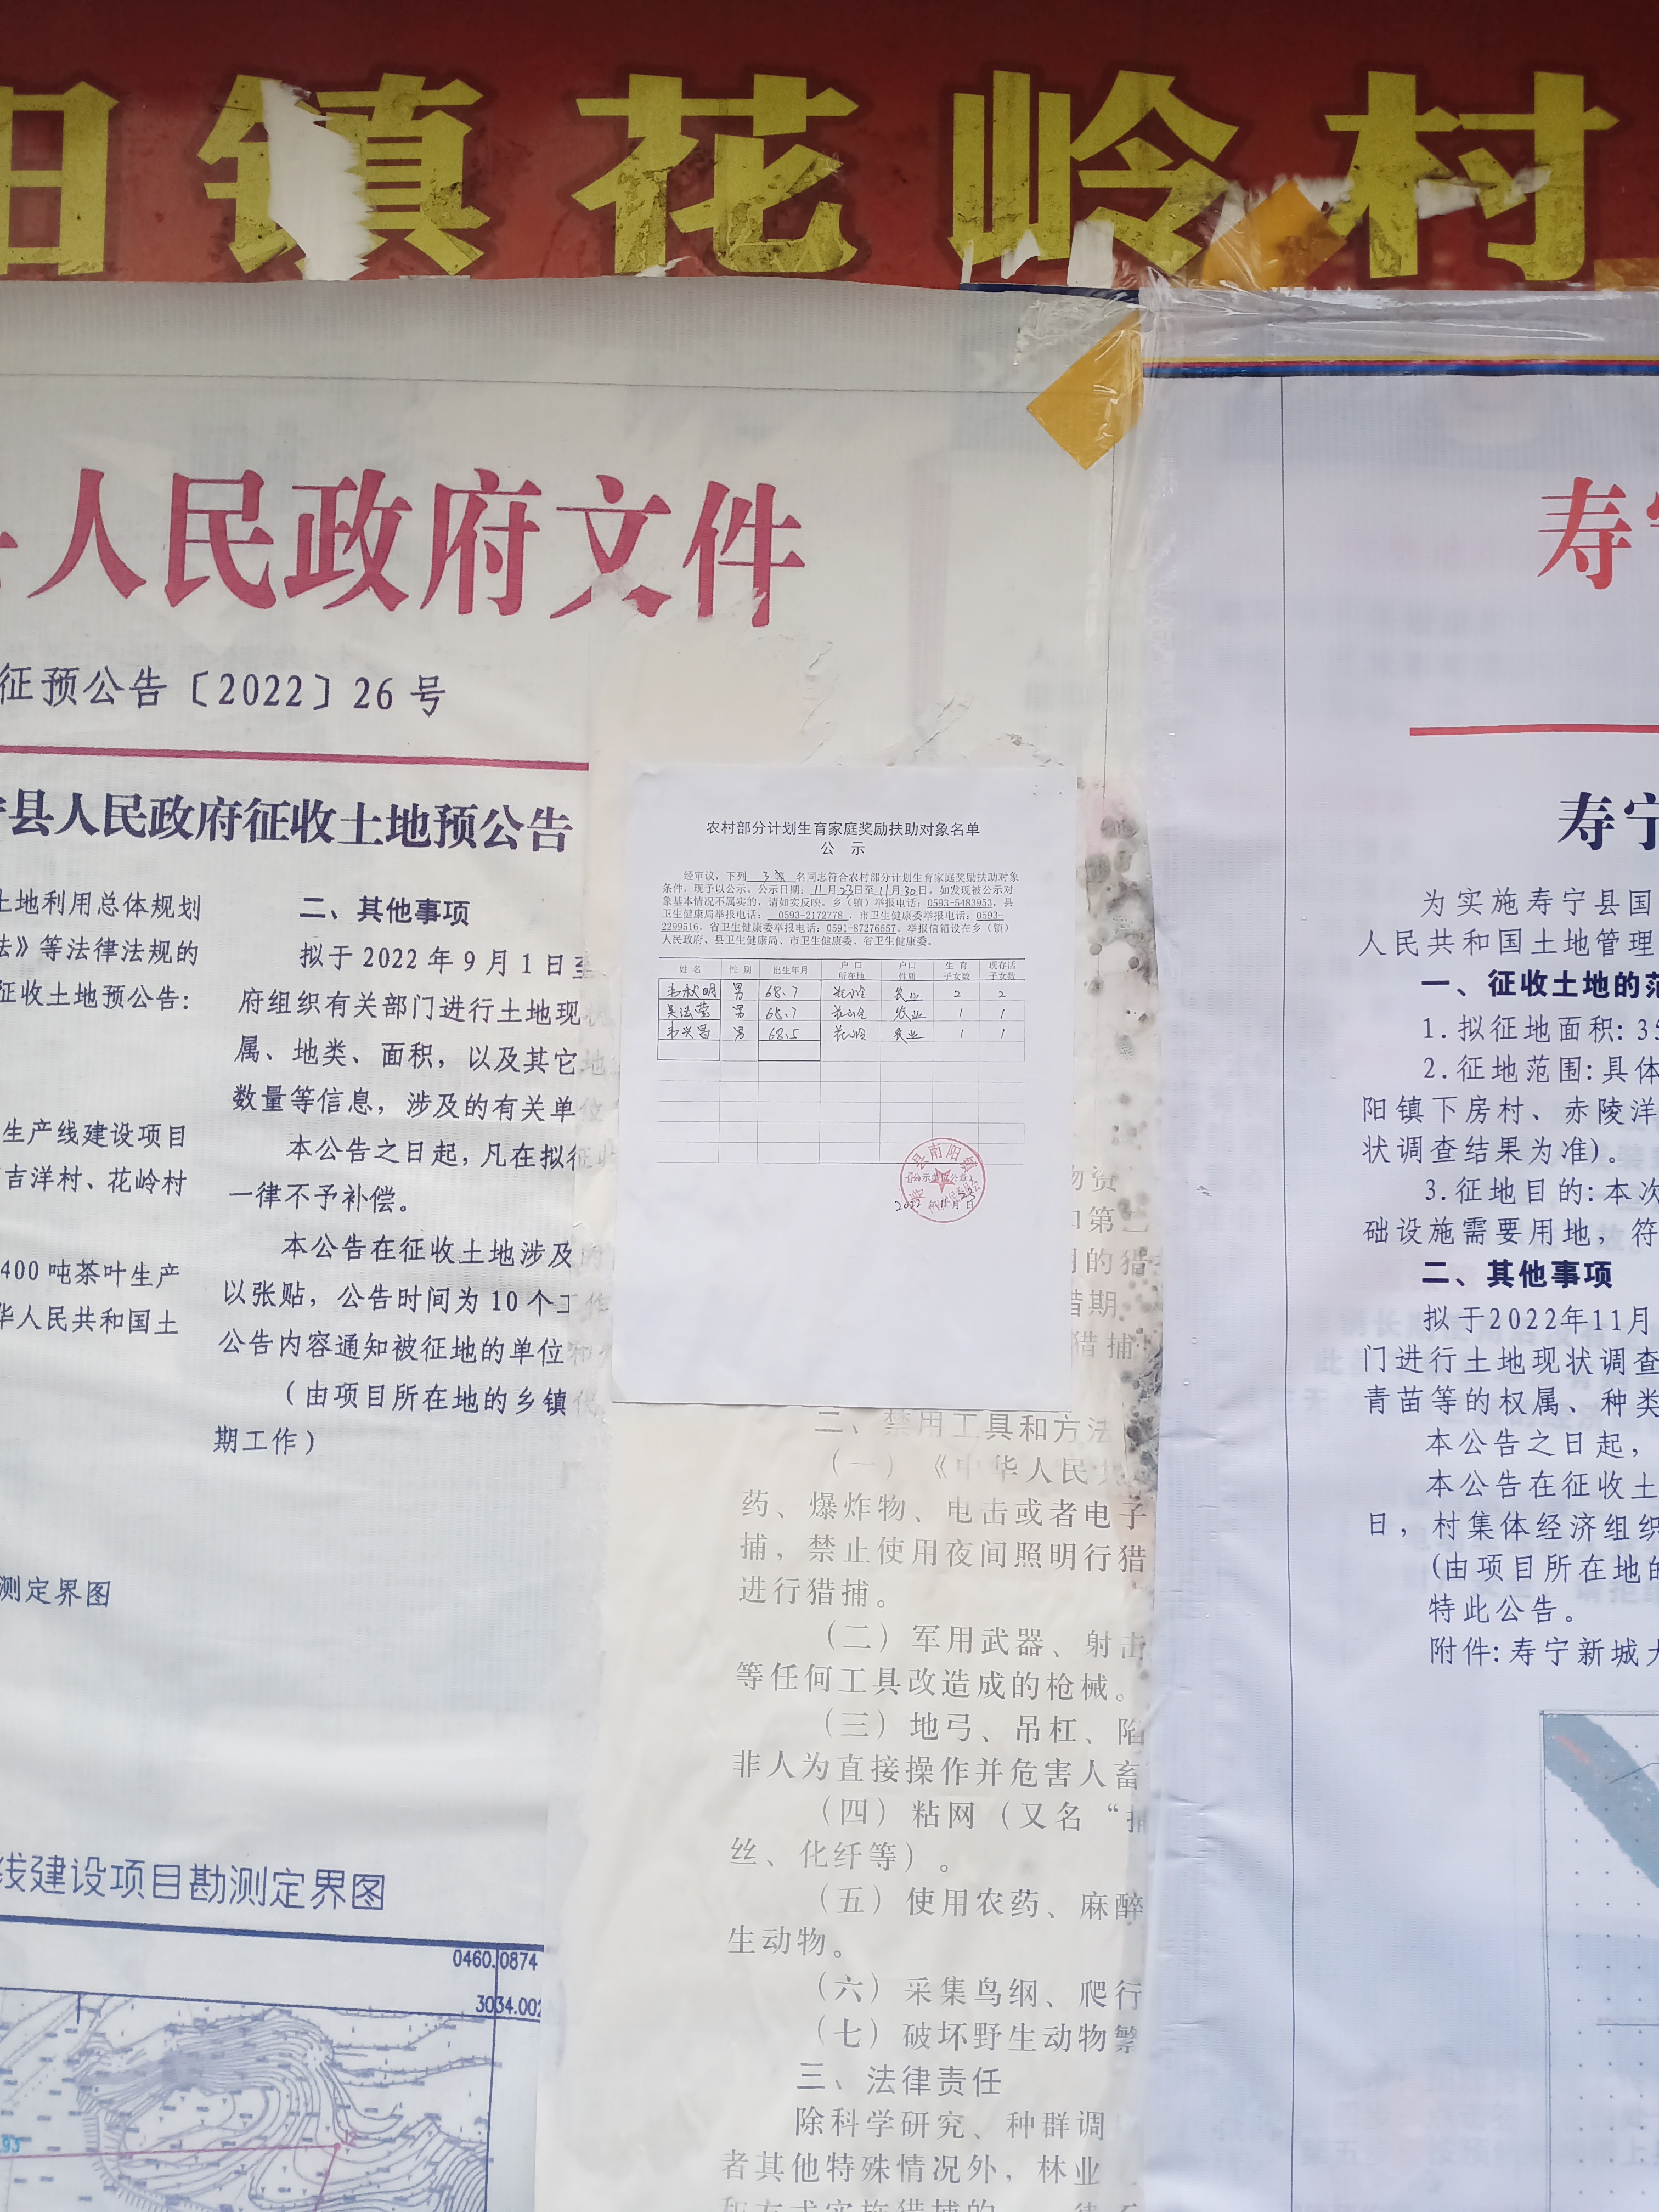 阳镇花岭村
人民政府文件
征预公告〔2022〕26号
宁县人民政府征收土地预公告
土地利用总体规划
法》等法律法规的
征收土地预公告:
生产线建设项目
吉洋村、花岭村
400吨茶叶生产
华人民共和国土
测定界图
二、其他事项
拟于2022年9月1日至
府组织有关部门进行土地现
属、地类、面积，以及其它
数量等信息，涉及的有关单
本公告之日起，凡在拟征
一律不予补偿。
本公告在征收土地涉及
以张贴，公告时间为10个工
公告内容通知被征地的单位
（由项目所在地的乡镇
期工作）
线建设项目勘测定界图
0460.0874
3034.002
农村部分计划生育家庭奖励扶助对象名单
公 示
经审议，下列 3 名同志符合农村部分计划生育家庭奖励扶助对象
条件，现予以公示。公示日期：11月23日至11月30日。如发现被公示对
象基本情况不属实的，请如实反映。乡（镇）举报电话：0593-5483953，县
卫生健康局举报电话：0593-2172778，市卫生健康委举报电话：0593-
2299516，省卫生健康委举报电话：0591-87276657。举报信箱设在乡（镇）
人民政府、县卫生健康局、市卫生健康委、省卫生健康委。
姓 名 性 别 出生年月 户 口 所在地 户口 性质 生 育 子女数 现存活 子女数
韦秋明 男 68.7 花岭 农业 2 2
吴法莹 男 68.7 花岭 农业 1 1
韦兴昌 男 68.5 花岭 农业 1 1
县南阳镇
2022年11月23日
物资
的猎
猎期
猎捕
二、禁用工具和方法
（一）《中华人民共
药、爆炸物、电击或者电子
捕，禁止使用夜间照明行猎
进行猎捕。
（二）军用武器、射击
等任何工具改造成的枪械。
（三）地弓、吊杠、陷
非人为直接操作并危害人畜
（四）粘网（又名“捕
丝、化纤等）。
（五）使用农药、麻醉
生动物。
（六）采集鸟纲、爬行
（七）破坏野生动物繁
三、法律责任
除科学研究、种群调
者其他特殊情况外，林业
和方式实施猎捕的
寿宁
寿宁
为实施寿宁县国
人民共和国土地管理
一、征收土地的范
1.拟征地面积:35
2.征地范围:具体
阳镇下房村、赤陵洋
状调查结果为准)。
3.征地目的:本次
础设施需要用地，符
二、其他事项
拟于2022年11月
门进行土地现状调查
青苗等的权属、种类
本公告之日起，
本公告在征收土
日，村集体经济组织
(由项目所在地的
特此公告。
附件:寿宁新城大